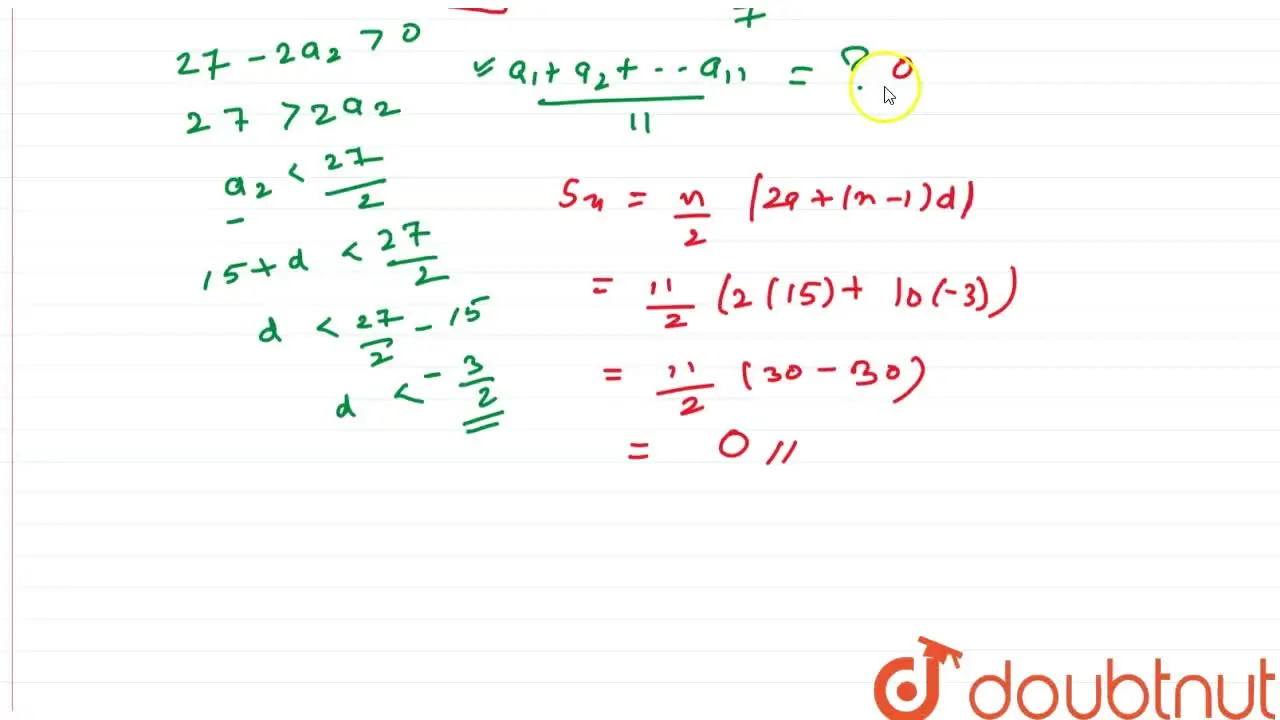 7
27 - 2a₂ > 0
27 > 2a₂
a₂ < 27/2
15 + d < 27/2
d < 27/2 - 15
d < -3/2
a₁ + a₂ + ... a₁₁ / 11 = ? 0
Sₙ = n/2 (2a + (n-1)d)
= 11/2 (2(15) + 10(-3))
= 11/2 (30 - 30)
= 0 //
doubtnut